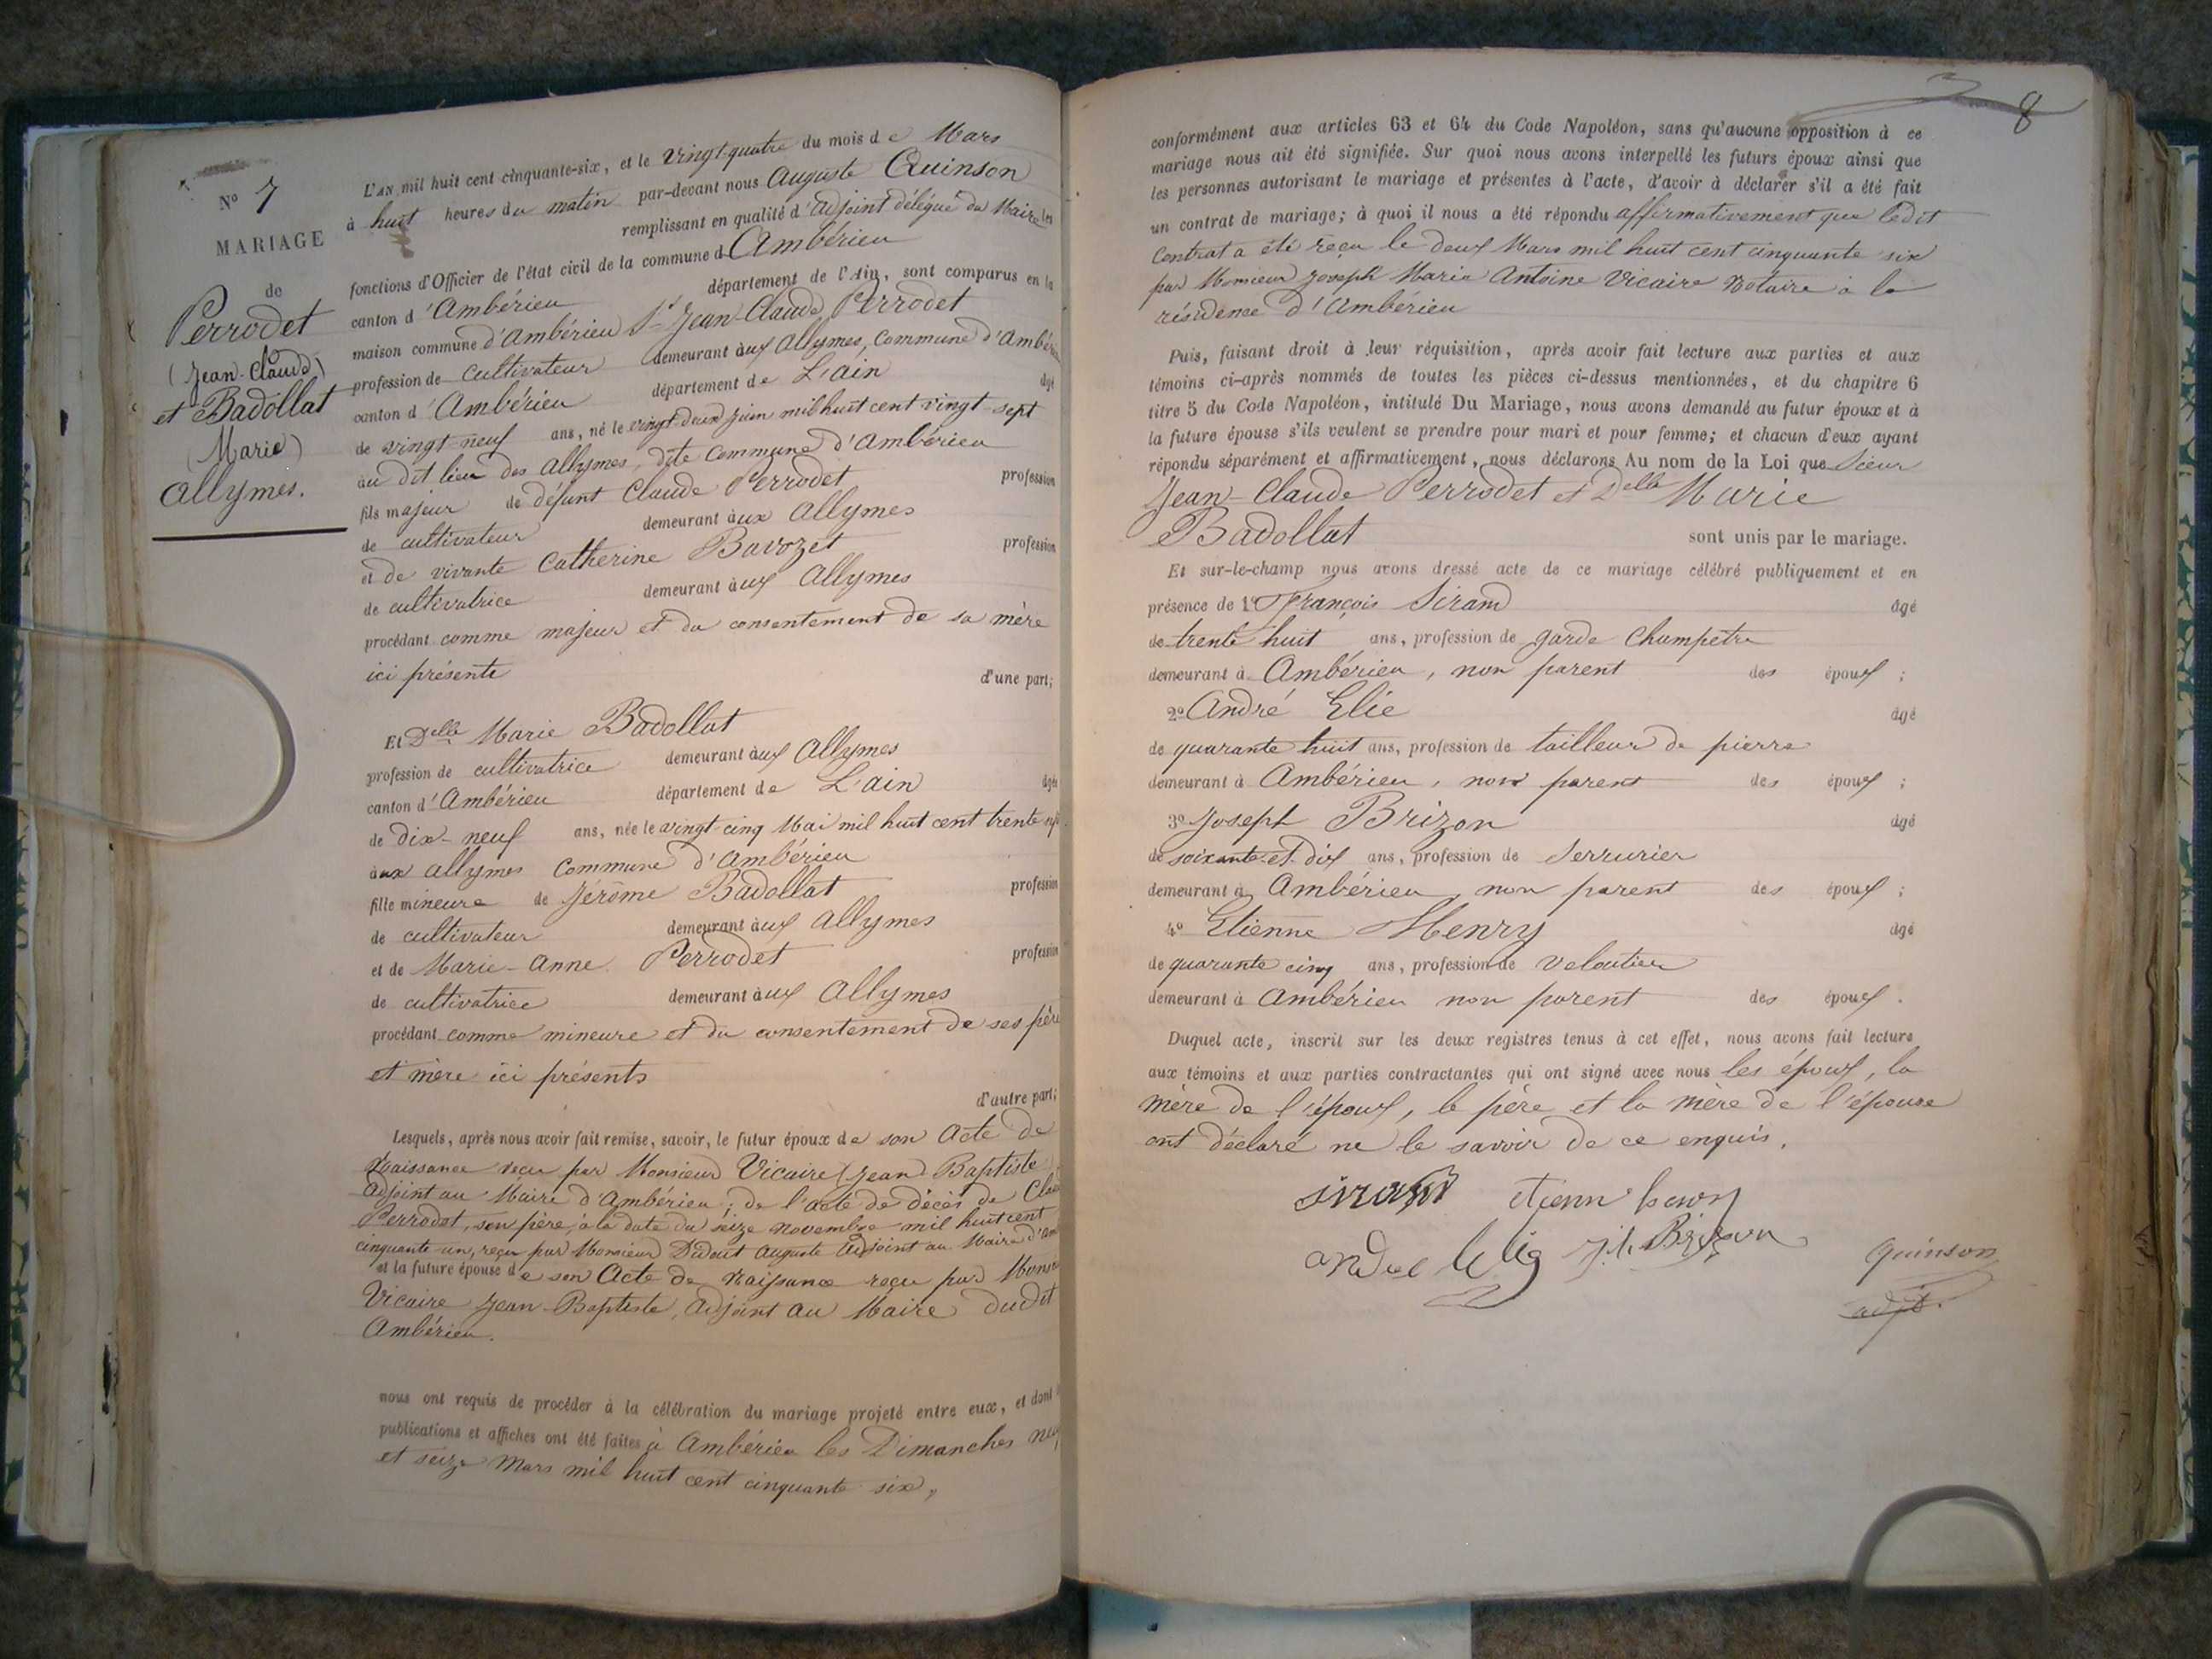 Nº 7
MARIAGE
de
Perrodet
(Jean-Claude)
et Badollat
(Marie)
Allymes.
L'AN mil huit cent cinquante-six, et le vingt-quatre du mois de Mars
à huit heures du matin par-devant nous Auguste Quinson
remplissant en qualité d'adjoint délégué du Maire les
fonctions d'Officier de l'état civil de la commune d'Ambérieu
canton d'Ambérieu département de l'Ain, sont comparus en la
maison commune d'Ambérieu Sr Jean-Claude Perrodet
profession de cultivateur demeurant aux Allymes, commune d'Ambérieu
canton d'Ambérieu département de L'ain âgé
de vingt-neuf ans, né le vingt-deux juin mil huit cent vingt-sept
au dit lieu des Allymes, dite commune d'Ambérieu
fils majeur de défunt Claude Perrodet profession
de cultivateur demeurant aux Allymes
et de vivante Catherine Bavozet profession
de cultivatrice demeurant aux Allymes
procédant comme majeur et du consentement de sa mère
ici présente d'une part;
Et Delle Marie Badollat
profession de cultivatrice demeurant aux Allymes
canton d'Ambérieu département de L'ain âgée
de dix-neuf ans, née le vingt-cinq Mai mil huit cent trente
aux Allymes commune d'Ambérieu
fille mineure de Jérôme Badollat profession
de cultivateur demeurant aux Allymes
et de Marie-Anne Perrodet profession
de cultivatrice demeurant aux Allymes
procédant comme mineure et du consentement de ses père
et mère ici présents
d'autre part;
Lesquels, après nous avoir fait remise, savoir, le futur époux de son Acte de
Naissance reçu par Monsieur Vicaire (Jean-Baptiste)
adjoint au Maire d'Ambérieu; de l'acte de décès de Claude
Perrodet, son père, à la date du seize novembre mil huit cent
cinquante-un, reçu par Monsieur Auguste adjoint au Maire d'Am
et la future épouse de son Acte de Naissance reçu par Monsieur
Vicaire Jean-Baptiste, adjoint au Maire dudit
Ambérieu.
nous ont requis de procéder à la célébration du mariage projeté entre eux, et dont
publications et affiches ont été faites à Ambérieu les Dimanches neuf
et seize Mars mil huit cent cinquante six,
8
conformément aux articles 63 et 64 du Code Napoléon, sans qu'aucune opposition à ce
mariage nous ait été signifiée. Sur quoi nous avons interpellé les futurs époux ainsi que
les personnes autorisant le mariage et présentes à l'acte, d'avoir à déclarer s'il a été fait
un contrat de mariage; à quoi il nous a été répondu affirmativement que ledit
contrat a été reçu le deux Mars mil huit cent cinquante six
par Monsieur Joseph Marie Antoine Vicaire Notaire à la
résidence d'Ambérieu
Puis, faisant droit à leur réquisition, après avoir fait lecture aux parties et aux
témoins ci-après nommés de toutes les pièces ci-dessus mentionnées, et du chapitre 6
titre 5 du Code Napoléon, intitulé Du Mariage, nous avons demandé au futur époux et à
la future épouse s'ils veulent se prendre pour mari et pour femme; et chacun d'eux ayant
répondu séparément et affirmativement, nous déclarons Au nom de la Loi que Sieur
Jean-Claude Perrodet et Delle Marie
Badollat sont unis par le mariage.
Et sur-le-champ nous avons dressé acte de ce mariage célébré publiquement et en
présence de 1º François Sirand âgé
de trente huit ans, profession de garde champetre
demeurant à Ambérieu, non parent des époux;
2º André Elie âgé
de quarante huit ans, profession de tailleur de pierre
demeurant à Ambérieu, non parent des époux;
3º Joseph Brizon âgé
de soixante et dix ans, profession de Serrurier
demeurant à Ambérieu, non parent des époux;
4º Etienne Henry âgé
de quarante cinq ans, profession de veloutier
demeurant à Ambérieu non parent des époux.
Duquel acte, inscrit sur les deux registres tenus à cet effet, nous avons fait lecture
aux témoins et aux parties contractantes qui ont signé avec nous les époux, la
mère de l'époux, le père et la mère de l'épouse
ont déclaré ne le savoir de ce enquis.
Sirand etienn henry
andre Elie J.h Brizon
Quinson
adjt.